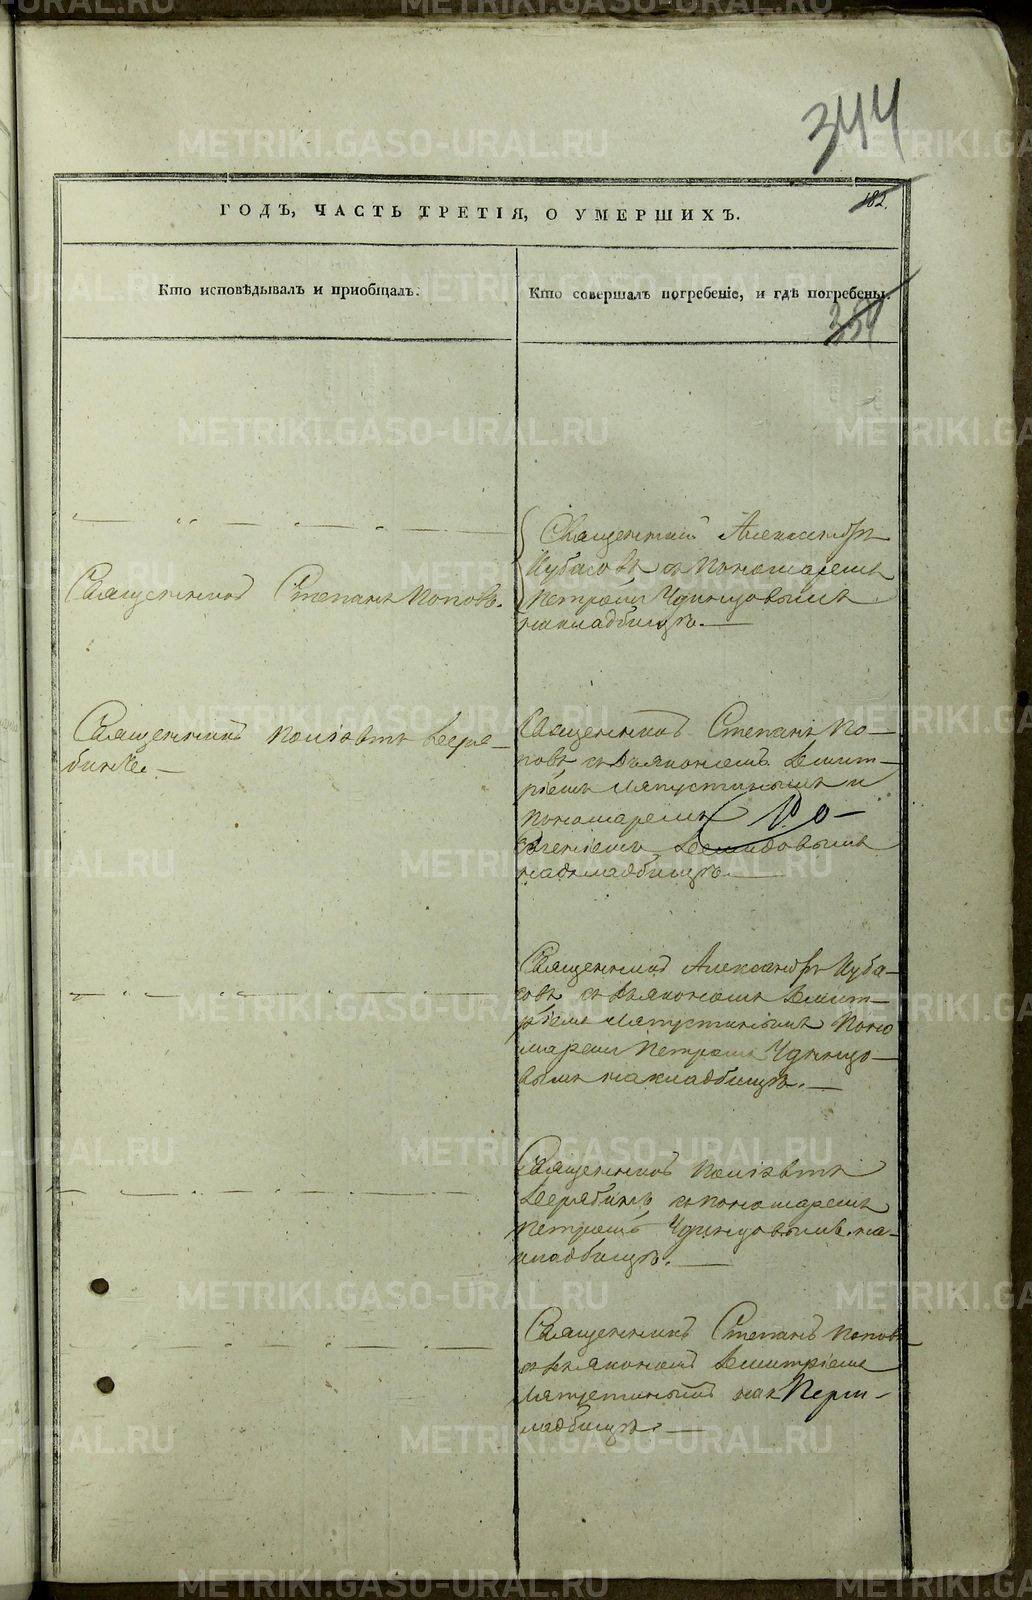 344
182.
ГОДЪ, ЧАСТЬ ТРЕТІЯ, О УМЕРШИХЪ.
Кто исповѣдывалъ и приобщалъ.
Кто совершалъ погребеніе, и гдѣ погребены.
354
Священникъ Александръ
Кубасовъ съ Пономаремъ
Священникъ Степанъ Поповъ.
Петромъ Удинцовымъ
накладбищѣ.
Священникъ Поліэвтъ Деря-
бинъ.
Священникъ Степанъ По-
повъ съ Дьякономъ Димит-
ріемъ Ляпустинымъ и
Пономаремъ
Демидовымъ
накладбищѣ.
Священникъ Александръ Куба-
совъ съ Дьякономъ Димит-
ріемъ Ляпустинымъ Поно
маремъ Петромъ Удинцо-
вымъ накладбищѣ.
Священникъ Поліэвтъ
Дерябинъ съ пономаремъ
Петромъ Удинцовымъ на-
кладбищѣ.
Священникъ Степанъ Поповъ
съ Дьякономъ Димитріемъ
Ляпустинымъ
кладбищѣ.
METRIKI.GASO-URAL.RU